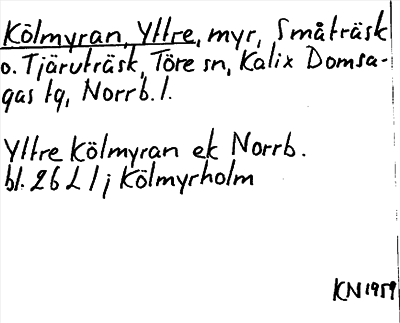 Kölmyran, Yttre, myr, Småträsk
o. Tjäruträsk, Töre sn, Kalix Domsa-
gas tg, Norrb. l.
Yttre Kölmyran ek Norrb.
bl. 26 L 1 j Kölmyrholm
KN 1959